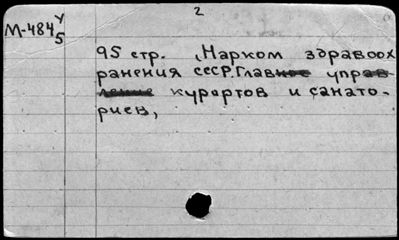 2
М-484 у/5
95 стр. , Нарком здравоох
ранения СССР. Главное управ
ление курортов и санато-
риев,